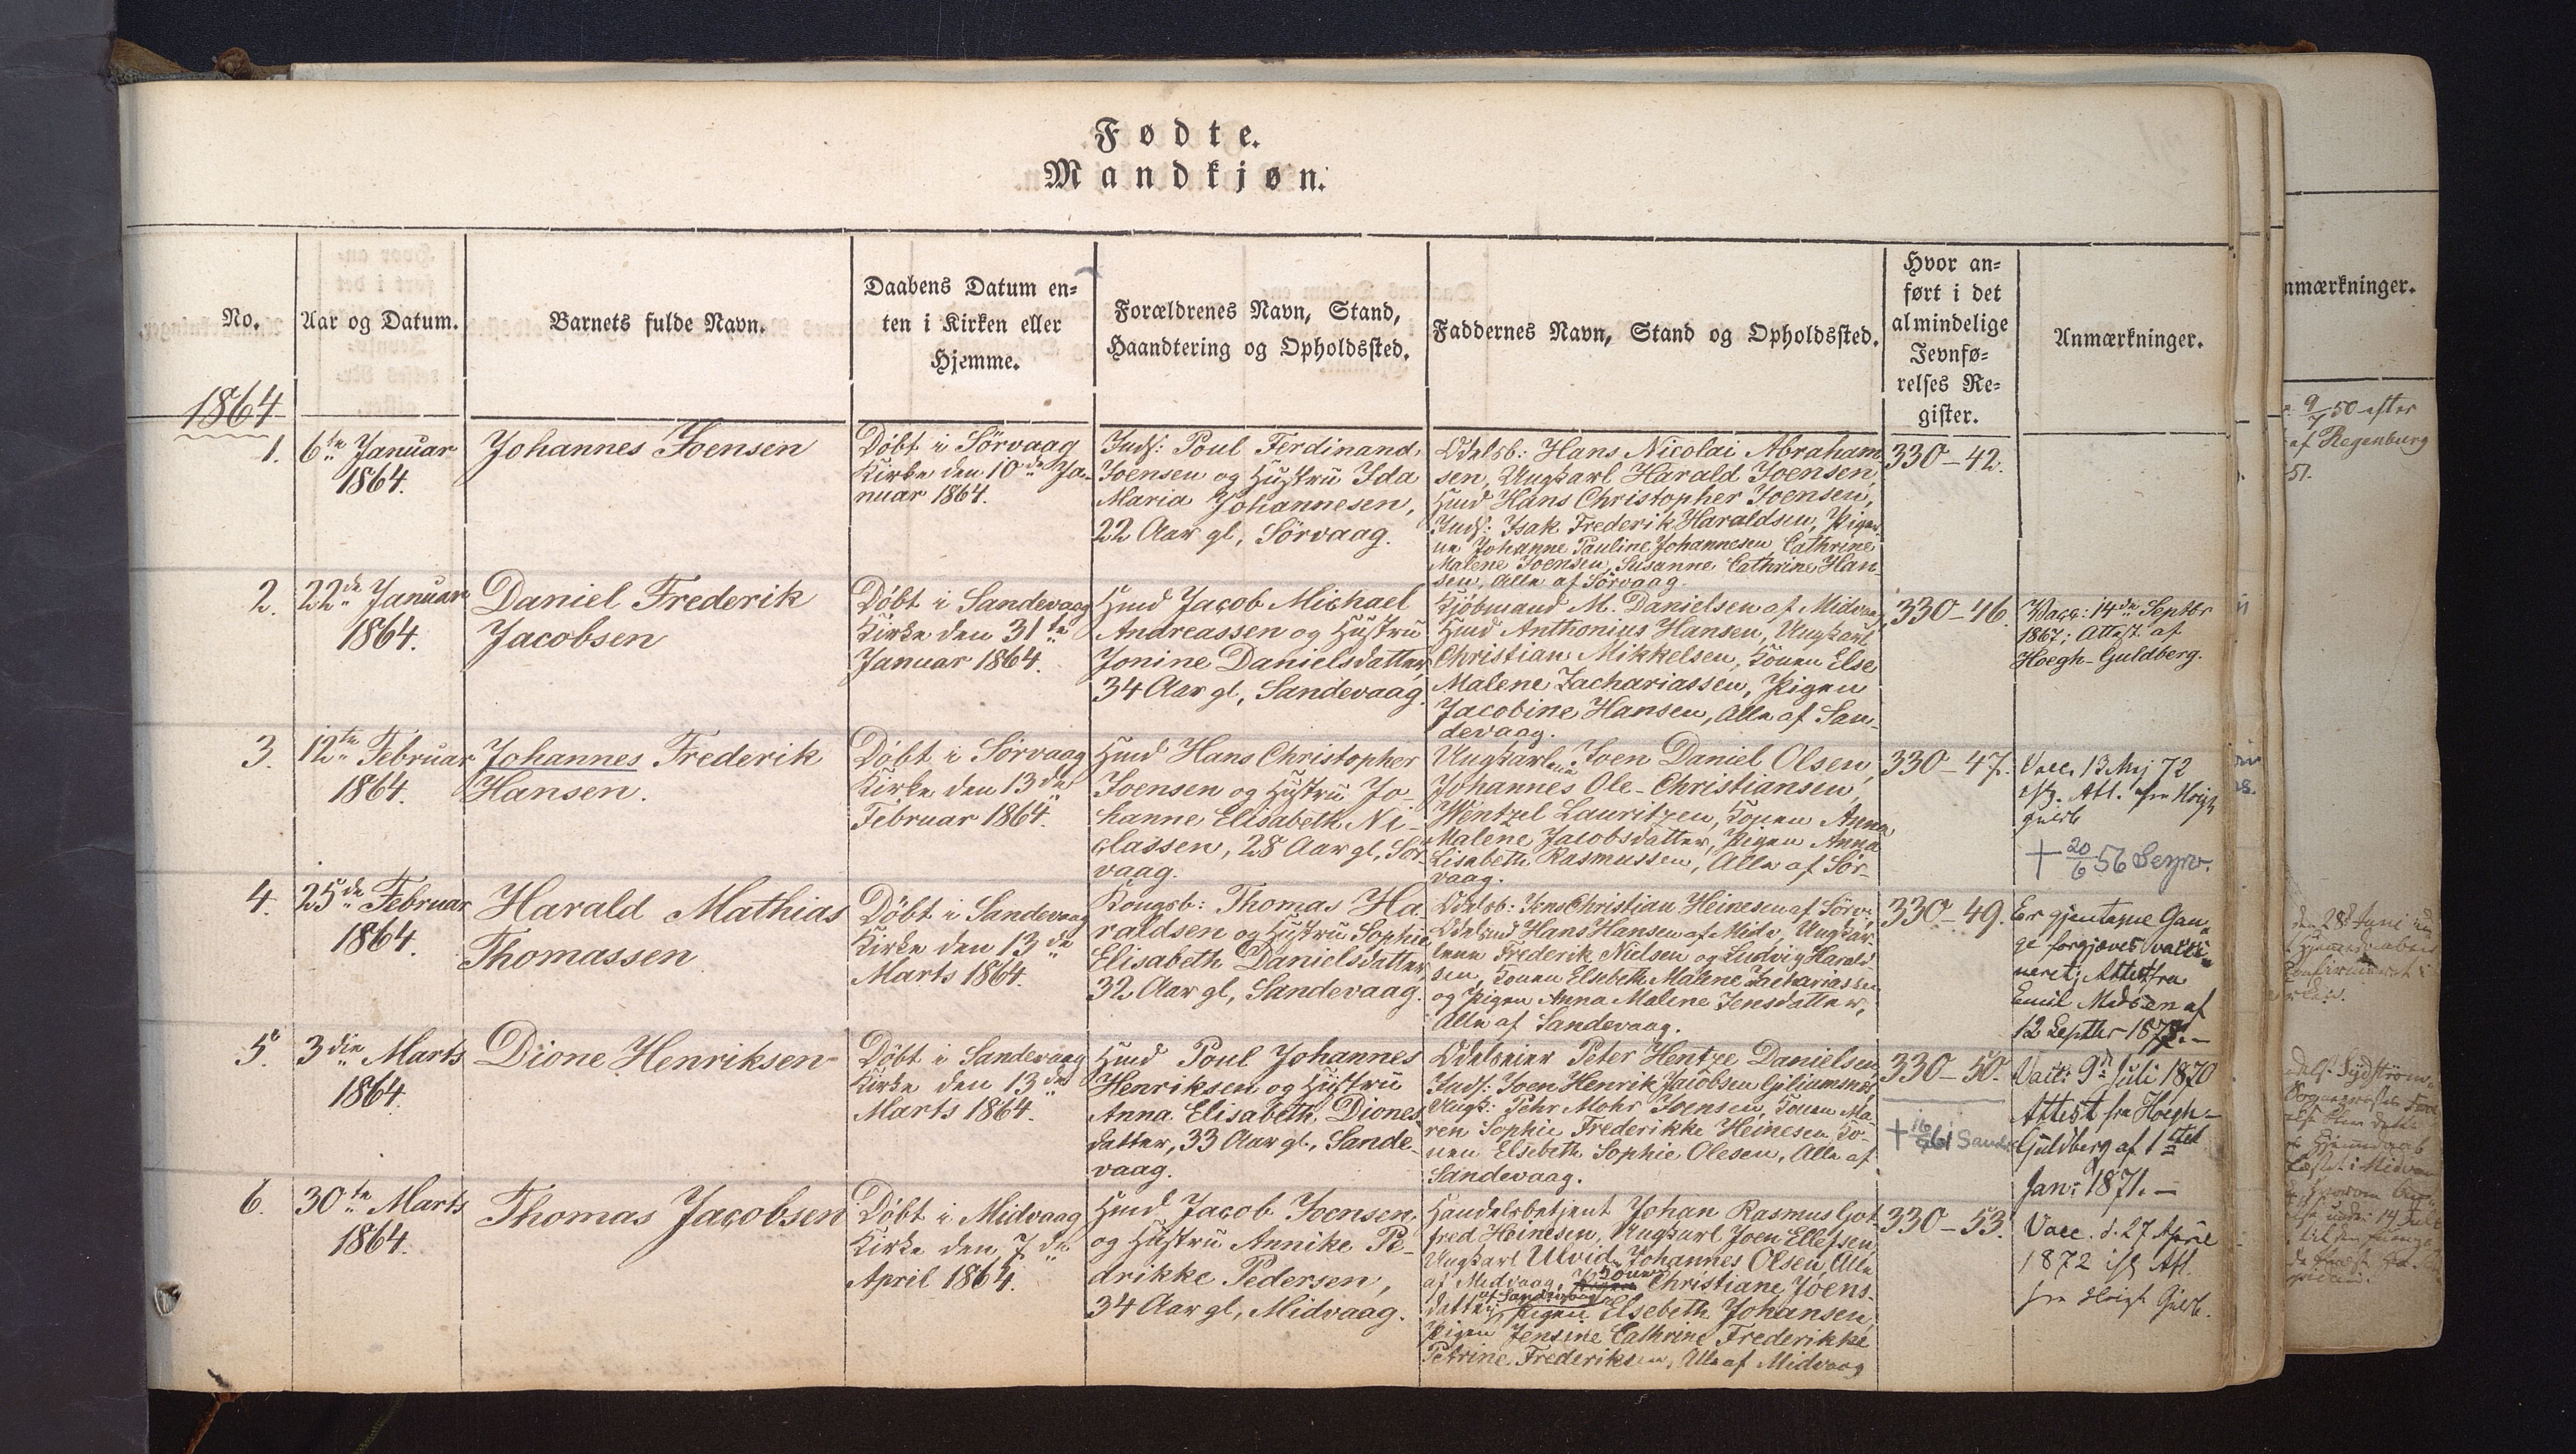 Fødte.
Mandkjøn.
No.
Aar og Datum.
Barnets fulde Navn.
Daabens Datum en-
ten i Kirken eller
Hjemme.
Forældrenes Navn, Stand,
Haandtering og Opholdssted.
Faddernes Navn, Stand og Opholdssted.
Hvor an-
ført i det
almindelige
Jevnfø-
relses Re-
gister.
Anmærkninger.
1864
1.
6te Januar
1864.
Johannes Joensen
Döbt i Sörvaag
Kirke den 10de Ja-
nuar 1864.
Inds: Poul Ferdinand
Joensen og Hustru Ida
Maria Johannesen,
22 Aar gl, Sörvaag.
Odelsb: Hans Nicolai Abraham-
sen, Ungkarl Harald Joensen,
Hmd Hans Christopher Joensen,
Inds: Isak Frederik Haraldsen, Piger-
ne Johanne Pauline Johannesen, Cathrine
Malene Joensen, Susanne Cathrine Han-
sen, Alle af Sörvaag.
330-42.
2.
22de Januar
1864.
Daniel Frederik
Jacobsen
Döbt i Sandevaag
Kirke den 31te
Januar 1864.
Hmd Jacob Michael
Andreassen og Hustru
Jonine Danielsdatter,
34 Aar gl, Sandevaag.
Kjöbmand M. Danielsen af Midvaag,
Hmd Anthonius Hansen, Ungkarl
Christian Mikkelsen, Konen Else
Malene Zachariassen, Pigen
Jacobine Hansen, Alle af San-
devaag.
330-46.
Vacc: 14de Septbr
1867; Attest af
Hoegh-Guldberg.
3.
12te Februar
1864.
Johannes Frederik
Hansen.
Döbt i Sörvaag
Kirke den 13de
Februar 1864.
Hmd Hans Christopher
Joensen og Hustru Jo-
hanne Elisabeth Ni-
classen, 28 Aar gl, Sör-
vaag.
Ungkarlene Joen Daniel Olsen,
Johannes Ole-Christiansen,
Wentzel Lauritzen, Konen Anna
Malene Jacobsdatter, Pigen Anna
Lisabeth Rasmussen, Alle af Sör-
vaag.
330-47.
Vacc. 13 Mj 72
Att. fra Höigh
Guldb
+ 20/6 56
4.
25de Februar
1864.
Harald Mathias
Thomassen
Döbt i Sandevaag
Kirke den 13de
Marts 1864.
Kongsb: Thomas Ha-
raldsen og Hustru Sophie
Elisabeth Danielsdatter,
32 Aar gl, Sandevaag.
Odelsb: Jens Christian Heinesen af Sörv:
Hans Hansen af Midv, Ungkar-
lene Frederik Nielsen og Ludvig Harald-
sen, Konen Elsebeth Malene Zachariassen
og Pigen Anna Malene Jensdatter,
Alle af Sandevaag.
330-49.
Er gjentagne Gan-
ge forgjæves vacci-
neret; Attest fra
Emil Madsen af
12 Septbr 1878.-
5.
3die Marts
1864.
Dione Henriksen
Döbt i Sandevaag
Kirke den 13de
Marts 1864.
Hmd Poul Johannes
Henriksen og Hustru
Anna Elisabeth Diones-
datter, 33 Aar gl, Sande-
vaag.
Odelseier Peter Hentze Danielsen,
Inds: Joen Henrik Jacobsen
Ungk: Pehr Mohr Joensen, Konen Ma-
ren Sophie Frederikke Heinesen, Ko-
nen Elsebeth Sophie Olesen, Alle af
Sandevaag.
330-50.
Vacc: 9de Juli 1870
Attest fra Hoegh-
Guldberg af 1stet
Jan: 1871.-
6.
30te Marts
1864.
Thomas Jacobsen
Döbt i Midvaag
Kirke den 7de
April 1864.
Hmd Jacob Joensen
og Hustru Annike Pe-
drikke Pedersen,
34 Aar gl, Midvaag.
Handelsbetjent Johan Rasmus Got-
fred Heinesen, Ungkarl Joen Ellefsen,
Ungkarl Ulvid Johannes Olsen, Alle
af Midvaag, Konen Christiane Joens-
datter af Sandevaag, Pigen Elsebeth Johansen,
Pigen Jensine Cathrine Frederikke
Petrine Frederiksen, Alle af Midvaag
330-53.
Vacc. d. 27 April
1872 Att.
fra Höigh Guldb.
nmærkninger.
9/7 50 efter
af Regenburg
51.